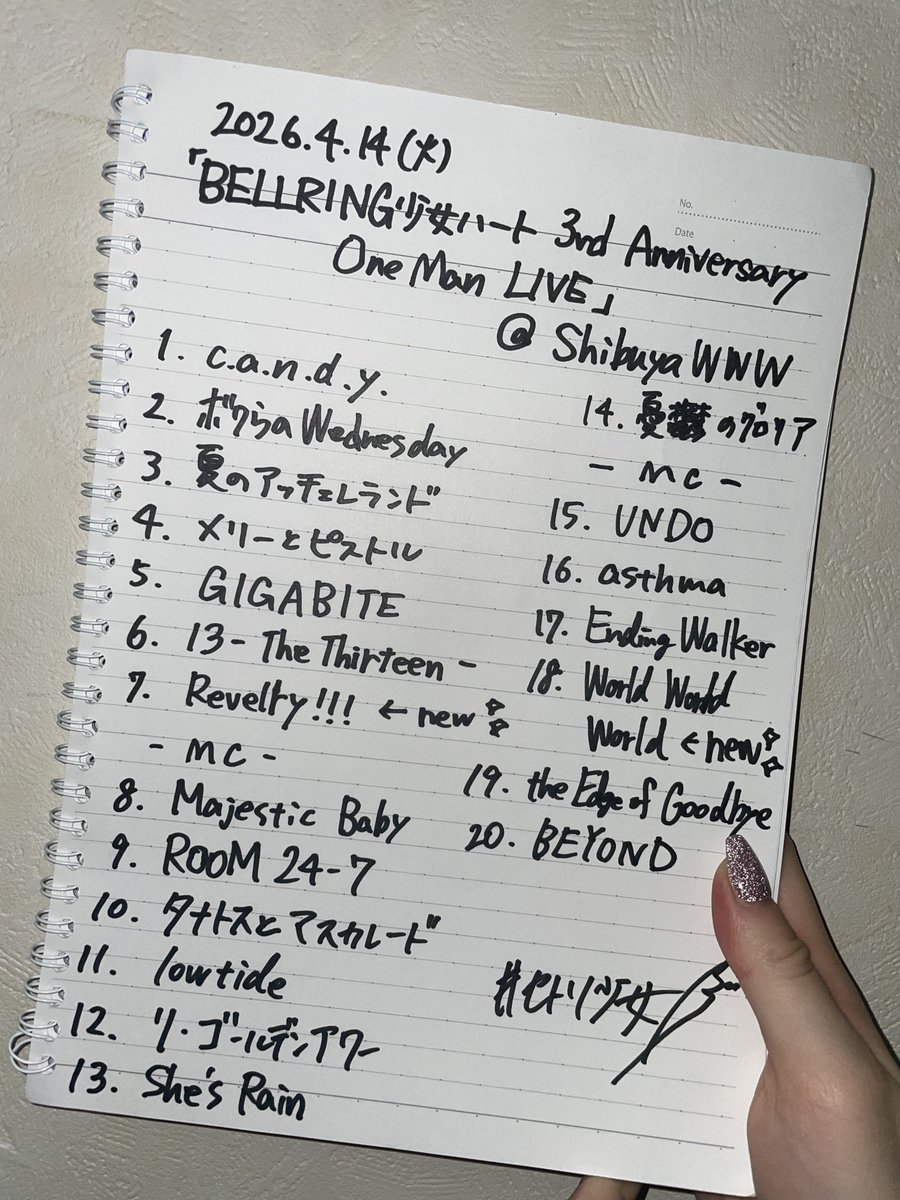 2026.4.14(火)
「BELLRING少女ハート 3rd Anniversary
One Man LIVE」
@ Shibuya WWW
No.
Date
1. c.a.n.d.y.
2. ボクらのWednesday
3. 夏のアッチェレランド
4. メリーとピストル
5. GIGABITE
6. 13-The Thirteen-
7. Revelry!!! ← new
- MC -
8. Majestic Baby
9. ROOM 24-7
10. タナトスとマスカレード
11. low tide
12. リ・ゴールデンアワー
13. She's Rain
14. 憂鬱のグロリア
- MC -
15. UNDO
16. asthma
17. Ending Walker
18. World World
World ← new
19. the Edge of Goodbye
20. BEYOND
#セトリ少女